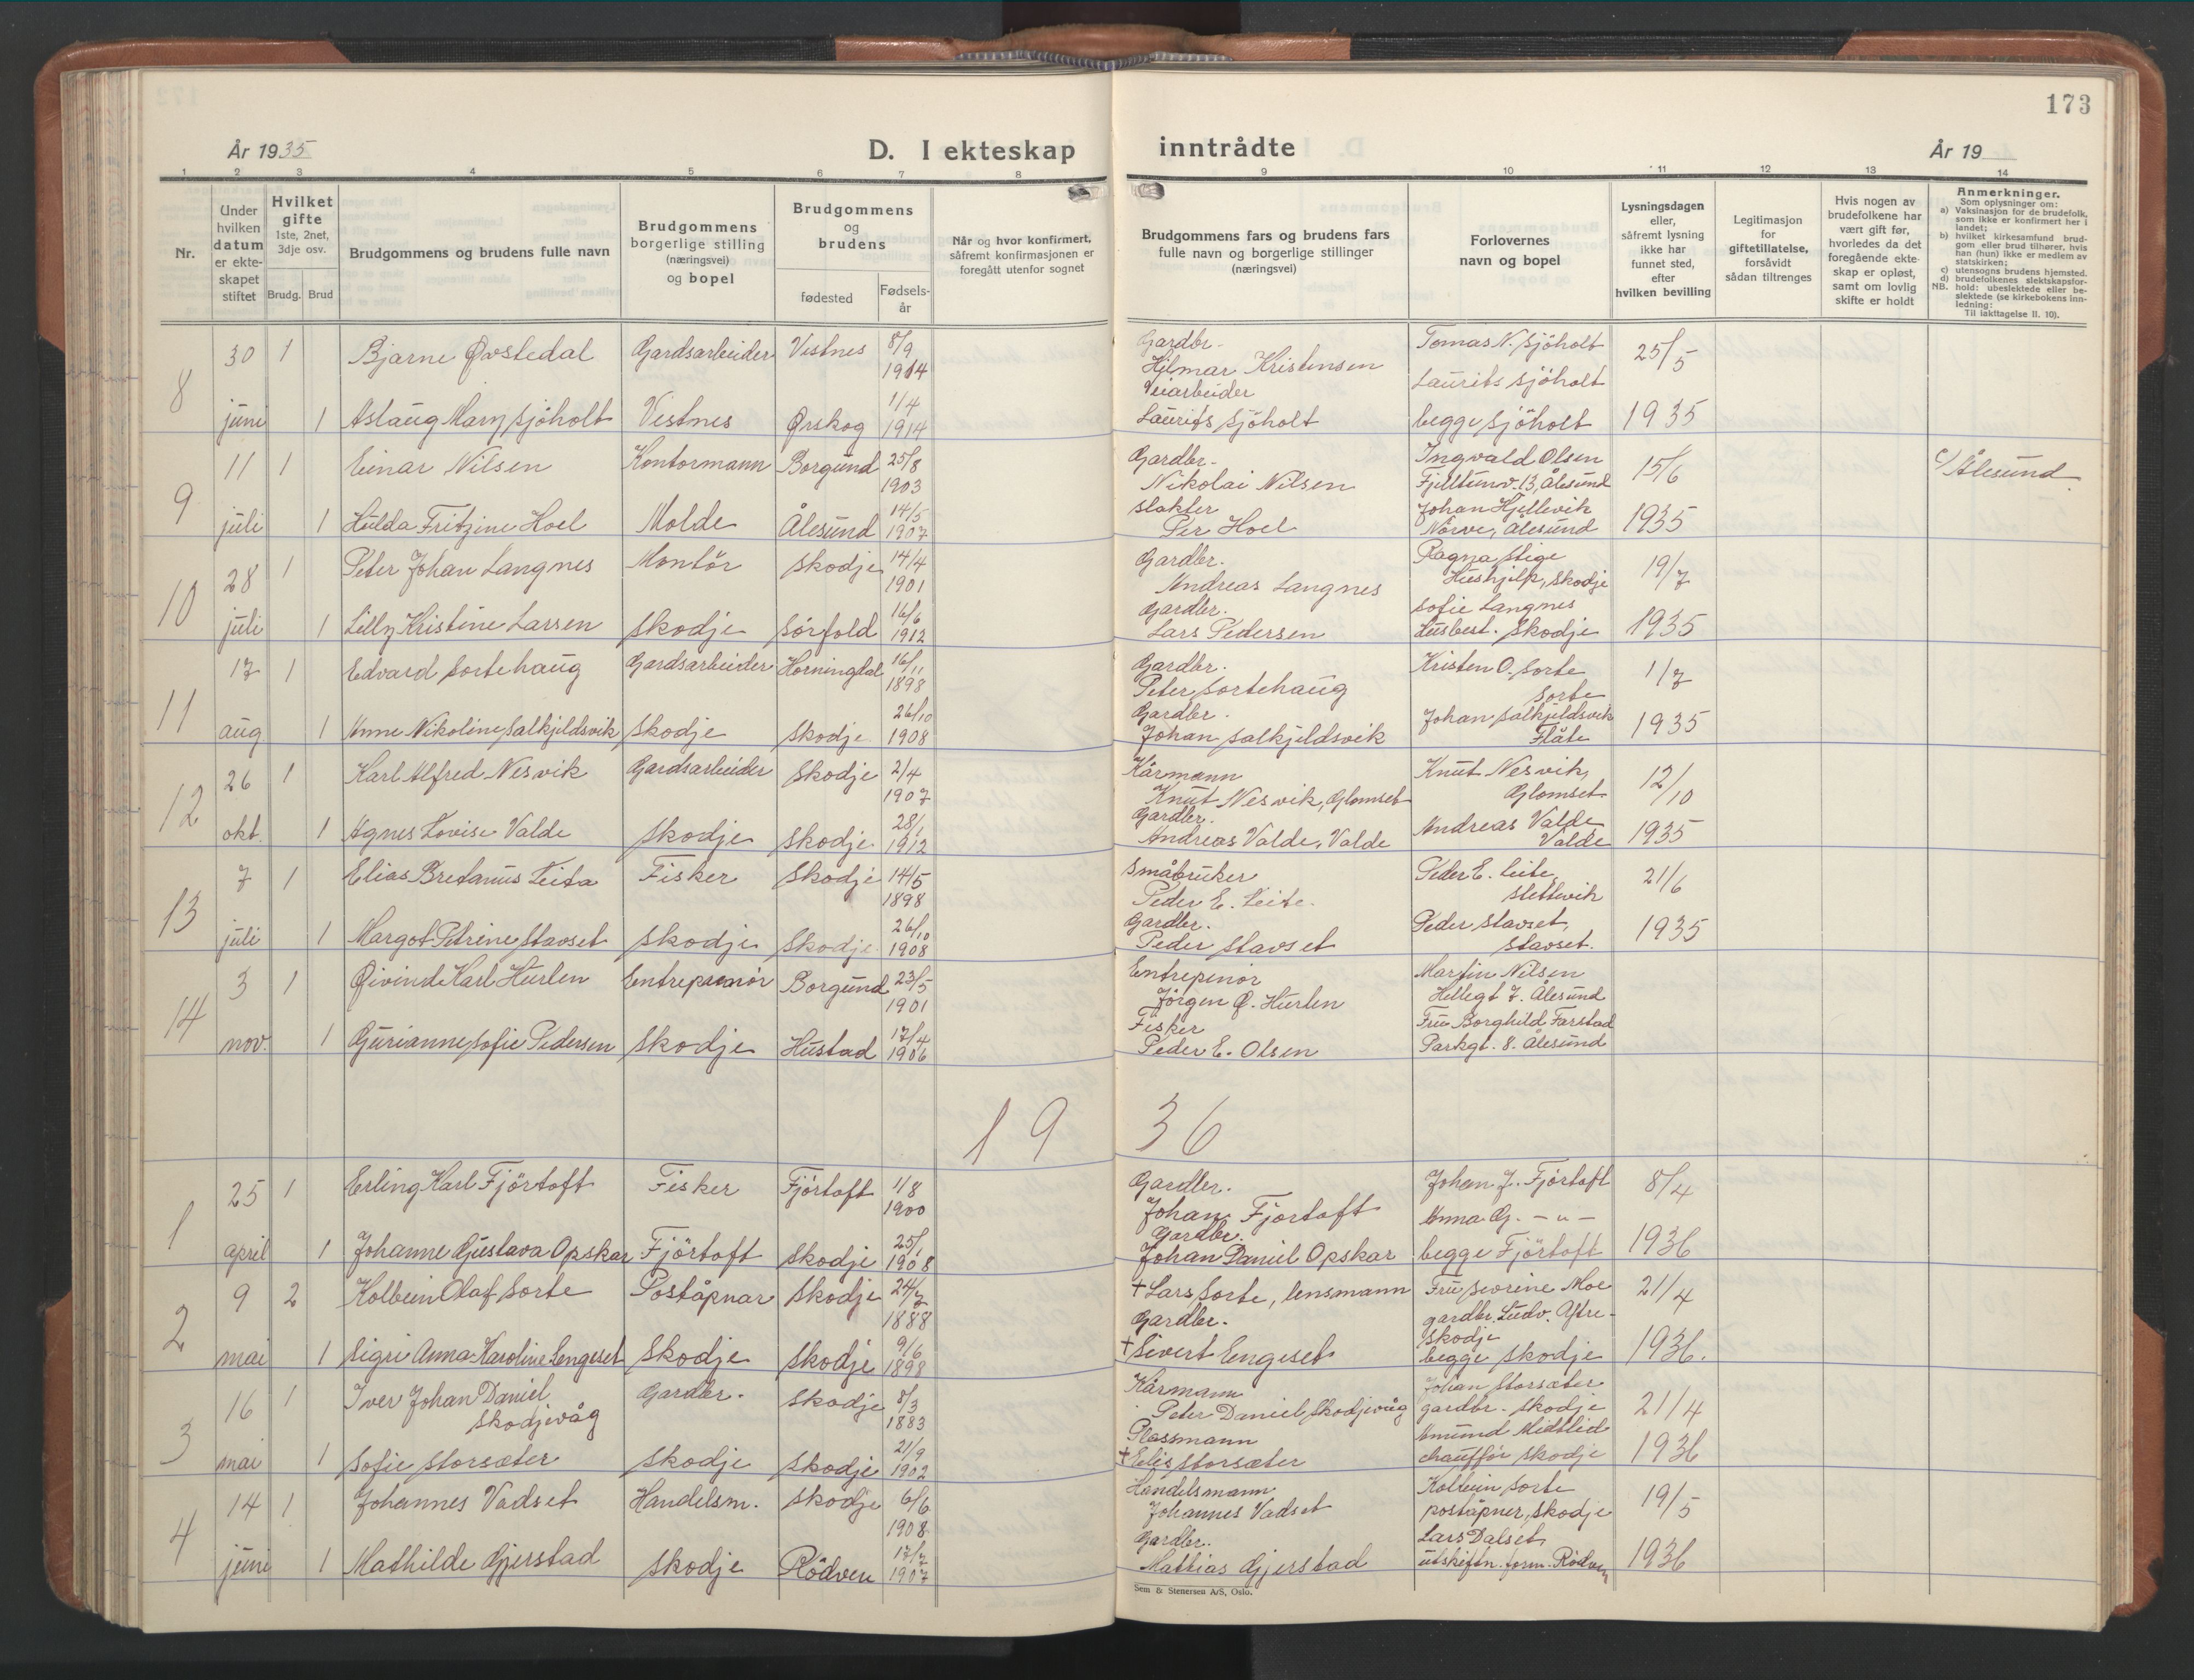 173
År 1935
D. I ekteskap inntrådte
År 19
1 2 3 4 5 6 7 8 9 10 11 12 13 14
Nr.
Under hvilken datum er ekteskapet stiftet
Hvilket gifte
1ste, 2net, 3dje osv.
Brudg. Brud
Brudgommens og brudens fulle navn
Brudgommens borgerlige stilling (næringsvei) og bopel
Brudgommens og brudens
fødested
Fødsels-år
Når og hvor konfirmert, såfremt konfirmasjonen er foregått utenfor sognet
Brudgommens fars og brudens fars fulle navn og borgerlige stillinger (næringsvei)
Forlovernes navn og bopel
Lysningsdagen eller, såfremt lysning ikke har funnet sted, efter hvilken bevilling
Legitimasjon for giftetillatelse, forsåvidt sådan tiltrenges
Hvis nogen av brudefolkene har vært gift før, hvorledes da det foregående ekteskap er opløst, samt om lovlig skifte er holdt
Anmerkninger.
Som oplysninger om:
a) Vaksinasjon for de brudefolk, som ikke er konfirmert her i landet;
b) hvilket kirkesamfund brudgom eller brud tilhører, hvis han (hun) ikke er medlem av statskirken;
c) utensogns brudens hjemsted.
d) brudefolkenes slektskapsforhold: ubeslektede eller beslektede (se kirkebokens innledning:
NB. Til iakttagelse II. 10).
8 30 1 Bjarne Øvstedal Gardsarbeider Vestnes 8/9 1914 Gardbr. Hjlmar Kristensen Tomas N. Sjöholt 25/5
juni 1 Aslaug Mary Sjöholt Vestnes Ørskog 1/4 1914 Veiarbeider Laurits Sjöholt Laurits Sjöholt begge Sjöholt 1935
9 11 1 Einar Nilsen Kontormann Borgund 25/8 1903 Gardbr. Nikolai Nilsen Ingvald Olsen Fjelltunv. 13, Ålesund 15/6 c/ Ålesund
juli 1 Hulda Fritzine Hoel Molde Ålesund 14/5 1907 slakter Per Hoel Johan Hjellevik Nörve, Ålesund 1935
10 28 1 Peter Johan Langnes Montör Skodje 14/4 1901 Gardbr. Andreas Langnes Ragna Stige Hushjelp, Skodje 19/7
juli 1 Lilly Kristine Larsen Skodje Sörfold 16/6 1912 Gardbr. Lars Pedersen Sofie Langnes Husbest. Skodje 1935
11 17 1 Edvard Sortehaug Gardsarbeider Horningdal 16/11 1898 Gardbr. Peter Sortehaug Kristen O. Sorte Sorte 1/7
aug 1 Anne Nikoline Salkjeldsvik Skodje Skodje 26/10 1908 Gardbr. Johan Salkjeldsvik Johan Salkjeldsvik Flåte 1935
12 26 1 Karl Alfred Nesvik Gardsarbeider Skodje 2/4 1907 Kårmann Knut Nesvik, Glomset Knut Nesvik, Glomset 12/10
okt. 1 Agnes Lovise Valde Skodje Skodje 28/1 1912 Gardbr. Andreas Valde, Valde Andreas Valde Valde 1935
13 7 1 Elias Bretanus Leita Fisker Skodje 14/5 1898 Småbruker Peder E. Leite Peder E. Leite, Slettevik 21/6
juli 1 Margot Petrine Stavset Skodje Skodje 26/10 1908 Gardbr. Peder Stavset Peder Stavset, Stavset. 1935
14 3 1 Øivind Karl Hurlen Entreprenör Borgund 23/5 1901 Entrepenör Jörgen Ø. Hurlen Martin Nilsen Hellegt 7. Ålesund
nov. 1 Gurianne Sofie Pedersen Skodje Hustad 17/4 1906 Fisker Peder E. Olsen Fru Borghild Farstad Parkgt. 8. Ålesund
19 36
1 25 1 Erling Karl Fjörtoft Fisker Fjörtoft 1/8 1900 Gardbr. Johan Fjortoft Johan J. Fjörtoft 8/4
april 1 Johanne Gustava Opskar Fjörtoft Skodje 25/1 1908 Gardbr. Johan Daniel Opskar Anna G. - " - begge Fjörtoft 1936
2 9 2 Kolbein Olaf Sorte Poståpnar Skodje 24/7 1888 † Lars Sorte, lensmann Fru Severine Moe 21/4
mai 1 Sigri Anna Karoline Engeset Skodje Skodje 9/6 1898 Gardbr. † Sivert Engeset gardbr. Ludv. Aftre- Skodje begge Skodje 1936.
3 16 1 Iver Johan Daniel Skodjevåg Gardbr. Skodje 8/3 1883 Kårmann Peter Daniel Skodjevåg Johan Storsæter gardbr. Skodje 21/4
mai 1 Sofie Storsæter Skodje Skodje 21/9 1902 Plassmann † Elis Storsæter Amund Midtlid chauffør Skodje 1936
4 14 1 Johannes Vadset Handelsm. Skodje 6/6 1908 Handelsmann Johannes Vadset Kolbein Sorte poståpner, Skodje 19/5
juni 1 Mathilde Gjerstad Skodje Rödven 17/7 1907 Gardbr. Mattias Gjerstad Lars Dalset utskiftn. form. Rödven 1936
Sem & Stenersen A/S, Oslo.